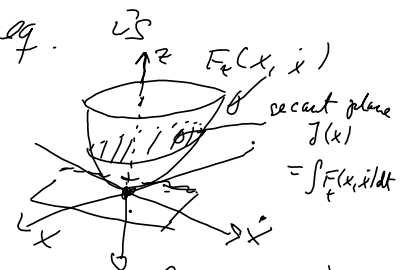 eq. vs
z
F_t(x, ẋ)
secant plane
J(x)
= ∫F_t(x, ẋ)dt
x
ẋ